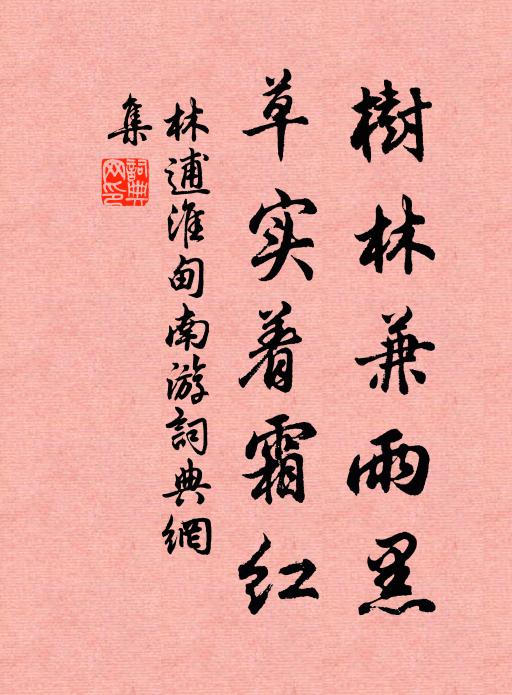 樹林兼雨黑
草实着霜红
林逋淮甸南游詞典網
集
詞典
网印